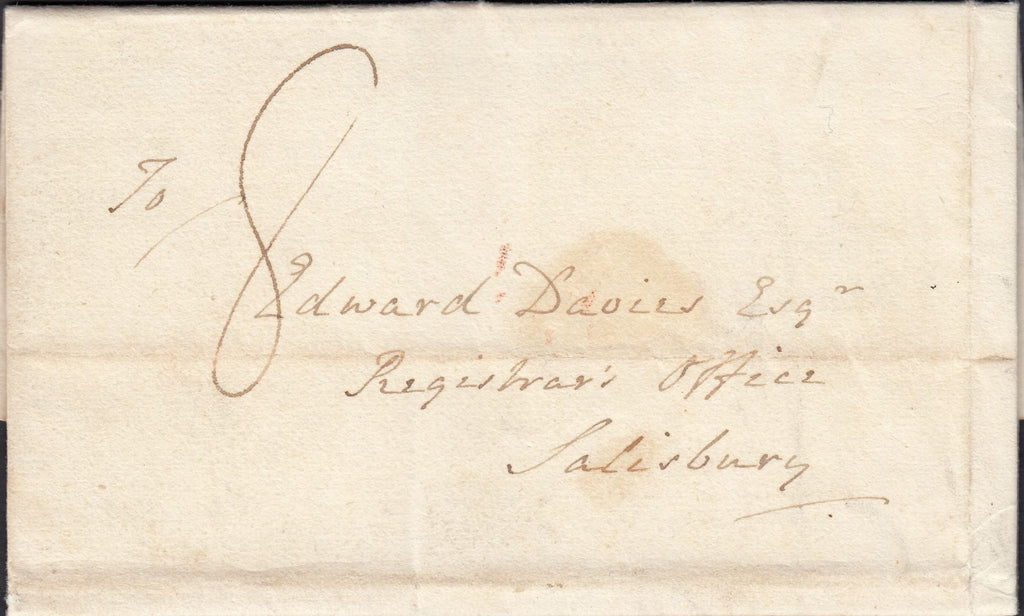 8
To
Edward Davies Esqr
Registrar's Office
Salisbury